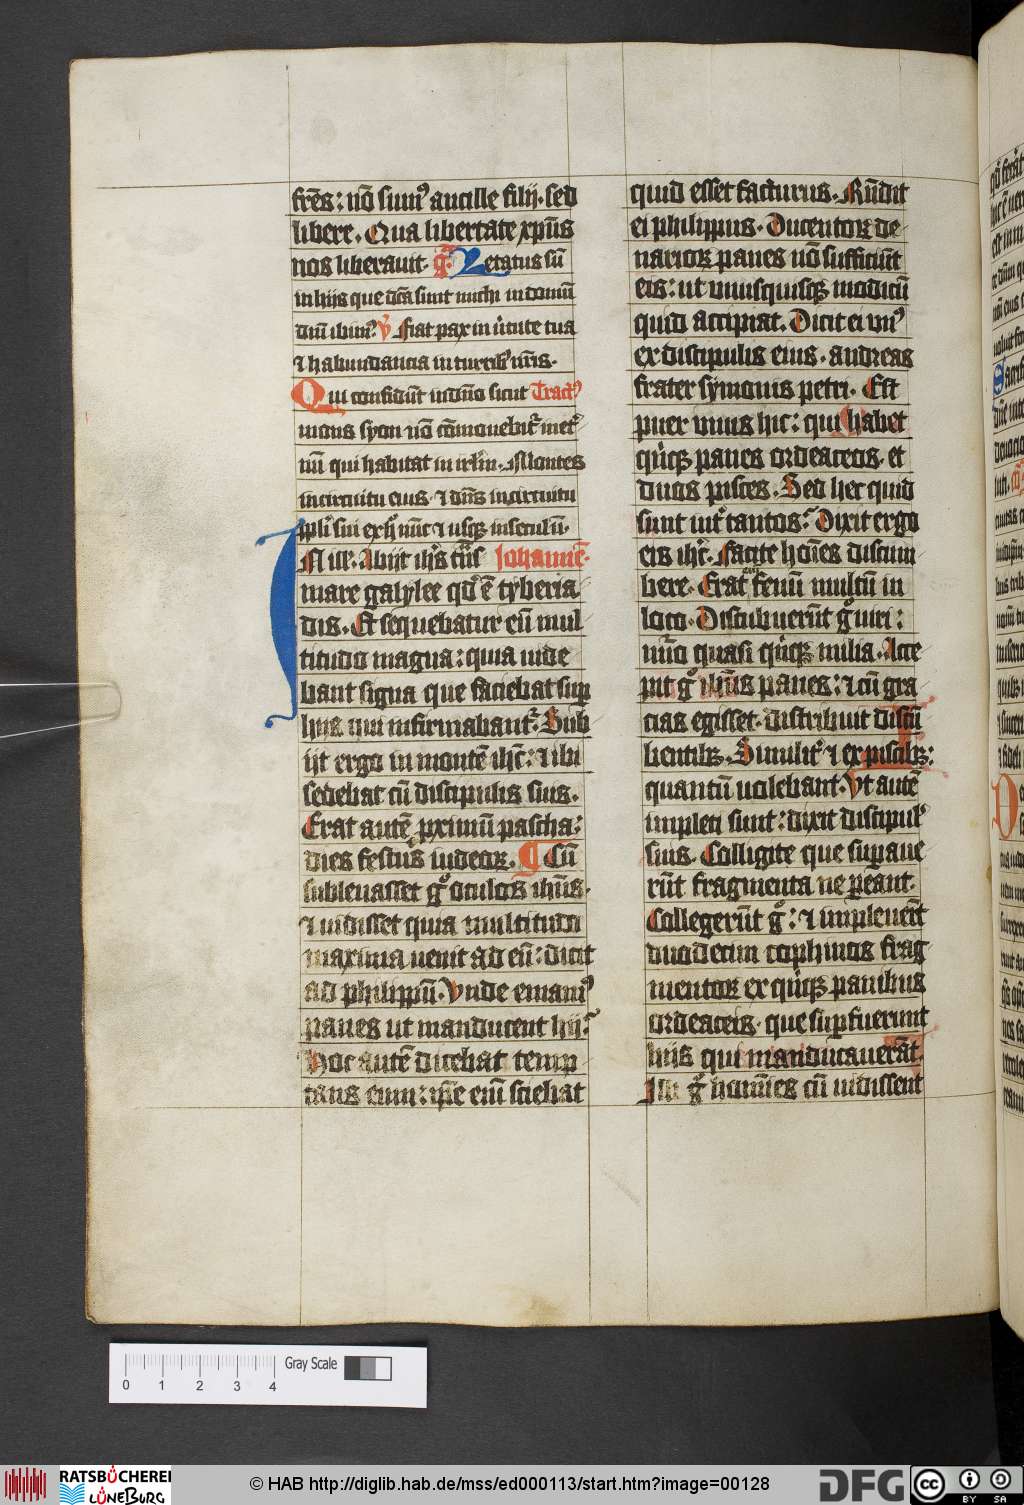 frēs: nō sumꝰ ancille filij. sed
libere. Qua libertate xp̄us
nos liberauit. gͣ. Letatus sū
in hijs que dc̄a sunt michi in domū
dn̄i ibimꝰ. v̄ Fiat pax in ūtute tua
⁊ habundancia in turribꝰ tuis.
Qui confidūt in dn̄o sicut Tractꝰ
mons syon nō cōmouebit᷑ in et᷑
nū qui habitat in irl̄m. Montes
in circuitu eius. ⁊ dn̄s in circuitu
ppl̓i sui ex hͦ nūc ⁊ usqꝫ in seculū.
IN ill̓. Abijt ih̄s trās Iohannē.
mare galylee qd̓ ē tyberia
dis. Et sequebatur eū mul
titudo magna: quia uide
bant signa que faciebat sup
hijs qui infirmabant᷑. Sub
ijt ergo in montē ih̄c: ⁊ ibi
sedebat cū discipulis suis.
Erat autē p̲ximū pascha:
dies festus iudeoꝝ. ¶ Cū
subleuasset gͦ oculos ih̄us.
⁊ uidisset quia multitudo
maxima uenit ad eū: dicit
ad philippū. Vnde emamꝰ
panes ut manducent hij?
Hoc autē dicebat temp
tans eum: ip̄e eni̅ sciebat
quid esset facturus. Rn̄dit
ei philippus. Ducentoꝝ de
narioꝝ panes nō sufficiūt
eis: ut unusquisqꝫ modicū
quid accipiat. Dicit ei vnꝰ
ex discipulis eius. andreas
frater symonis petri. Est
puer unus hic: qui habet
qͥnqꝫ panes ordeaceos. et
duos pisces. Sed hec quid
sunt int᷑ tantos? Dixit ergo
eis ih̄c. Facite hōīes discum
bere. Erat fenū multū in
loco. Discubuerūt gͦ uiri:
nūo quasi qͥnqꝫ milia. Acce
pit gͦ ih̄us panes: ⁊ cū gra
cias egisset. distribuit discū
bentibꝫ. Similit᷑ ⁊ ex piscibꝫ:
quantū uolebant. Vt autē
impleti sunt: dixit discipulꝰ
suis. Colligite que sup̲aue
rūt fragmenta ne p̲eant.
Collegerūt gͦ: ⁊ impleuerūt
duodecim cophinos frag
mentoꝝ ex qͥnqꝫ panibus
ordeaceis. que sup̲fuerunt
hijs qui manducauerāt.
Illi gͦ homīes cū uidissent
0 1 2 3 4
Gray Scale
RATSBÜCHEREI
LÜNEBURG
© HAB http://diglib.hab.de/mss/ed000113/start.htm?image=00128
DFG
cc BY SA